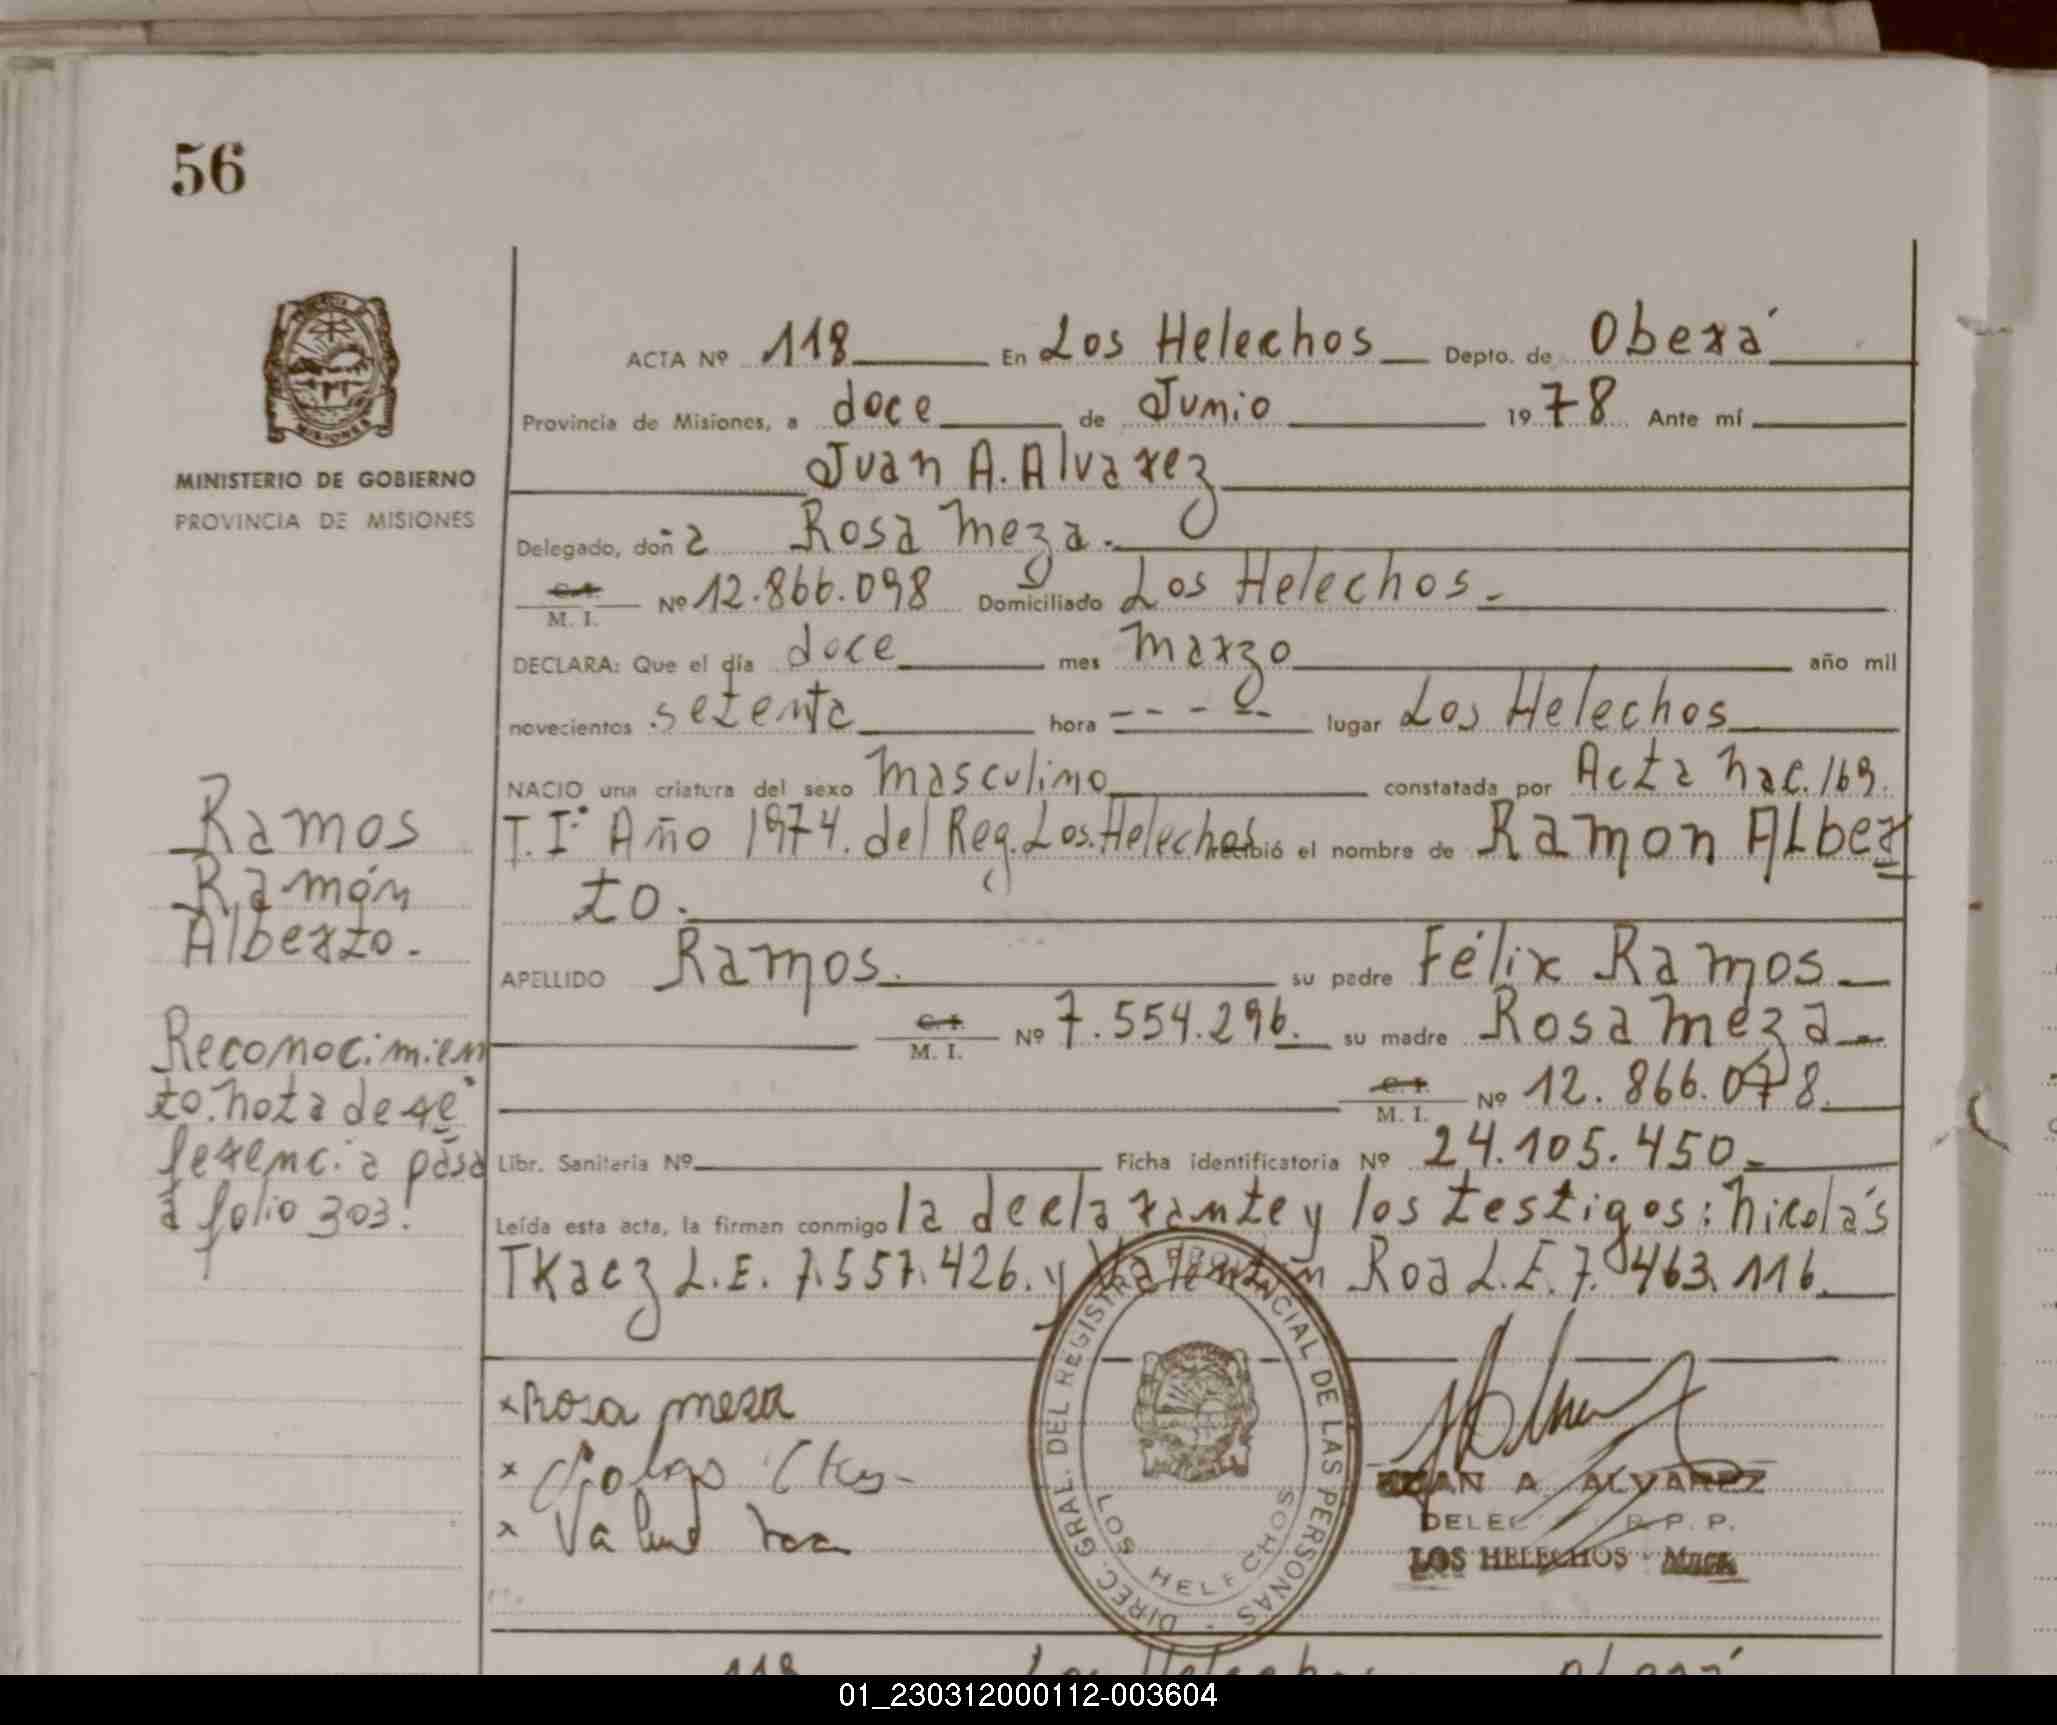 56
MINISTERIO DE GOBIERNO
PROVINCIA DE MISIONES
ACTA Nº 118 En Los Helechos Depto. de Oberá
Provincia de Misiones, a doce de Junio 1978 Ante mí
Juan A. Alvarez
Delegado, doña Rosa Meza.
C.I. M. I. Nº 12.866.098 Domiciliado Los Helechos.
DECLARA: Que el día doce mes Marzo año mil
novecientos setenta hora - - - - lugar Los Helechos
NACIO una criatura del sexo Masculino constatada por Acta Nac. 169.
T. Iº Año 1974. del Reg. Los Helechos recibió el nombre de Ramon Alber
to.
APELLIDO Ramos. su padre Félix Ramos
C.I. M. I. Nº 7.554.296. su madre Rosa Meza
C.I. M. I. Nº 12.866.078
Libr. Sanitaria Nº Ficha identificatoria Nº 24.105.450
Leída esta acta, la firman conmigo la declarante y los testigos: Nicolás
TKacz L.E. 7.557.426. y Valentín Roa L.E. 7.463.116.
Ramos
Ramón
Alberto.
Reconocimien
to. Nota de re
ferencia pasa
a folio 303!
x Rosa meza
x
x Roa
DIREC. GRAL. DEL REGISTRO PROVINCIAL DE LAS PERSONAS
LOS HELECHOS
JUAN A. ALVAREZ
R. P. P.
LOS HELECHOS
118 Los Helechos Oberá
01_230312000112-003604